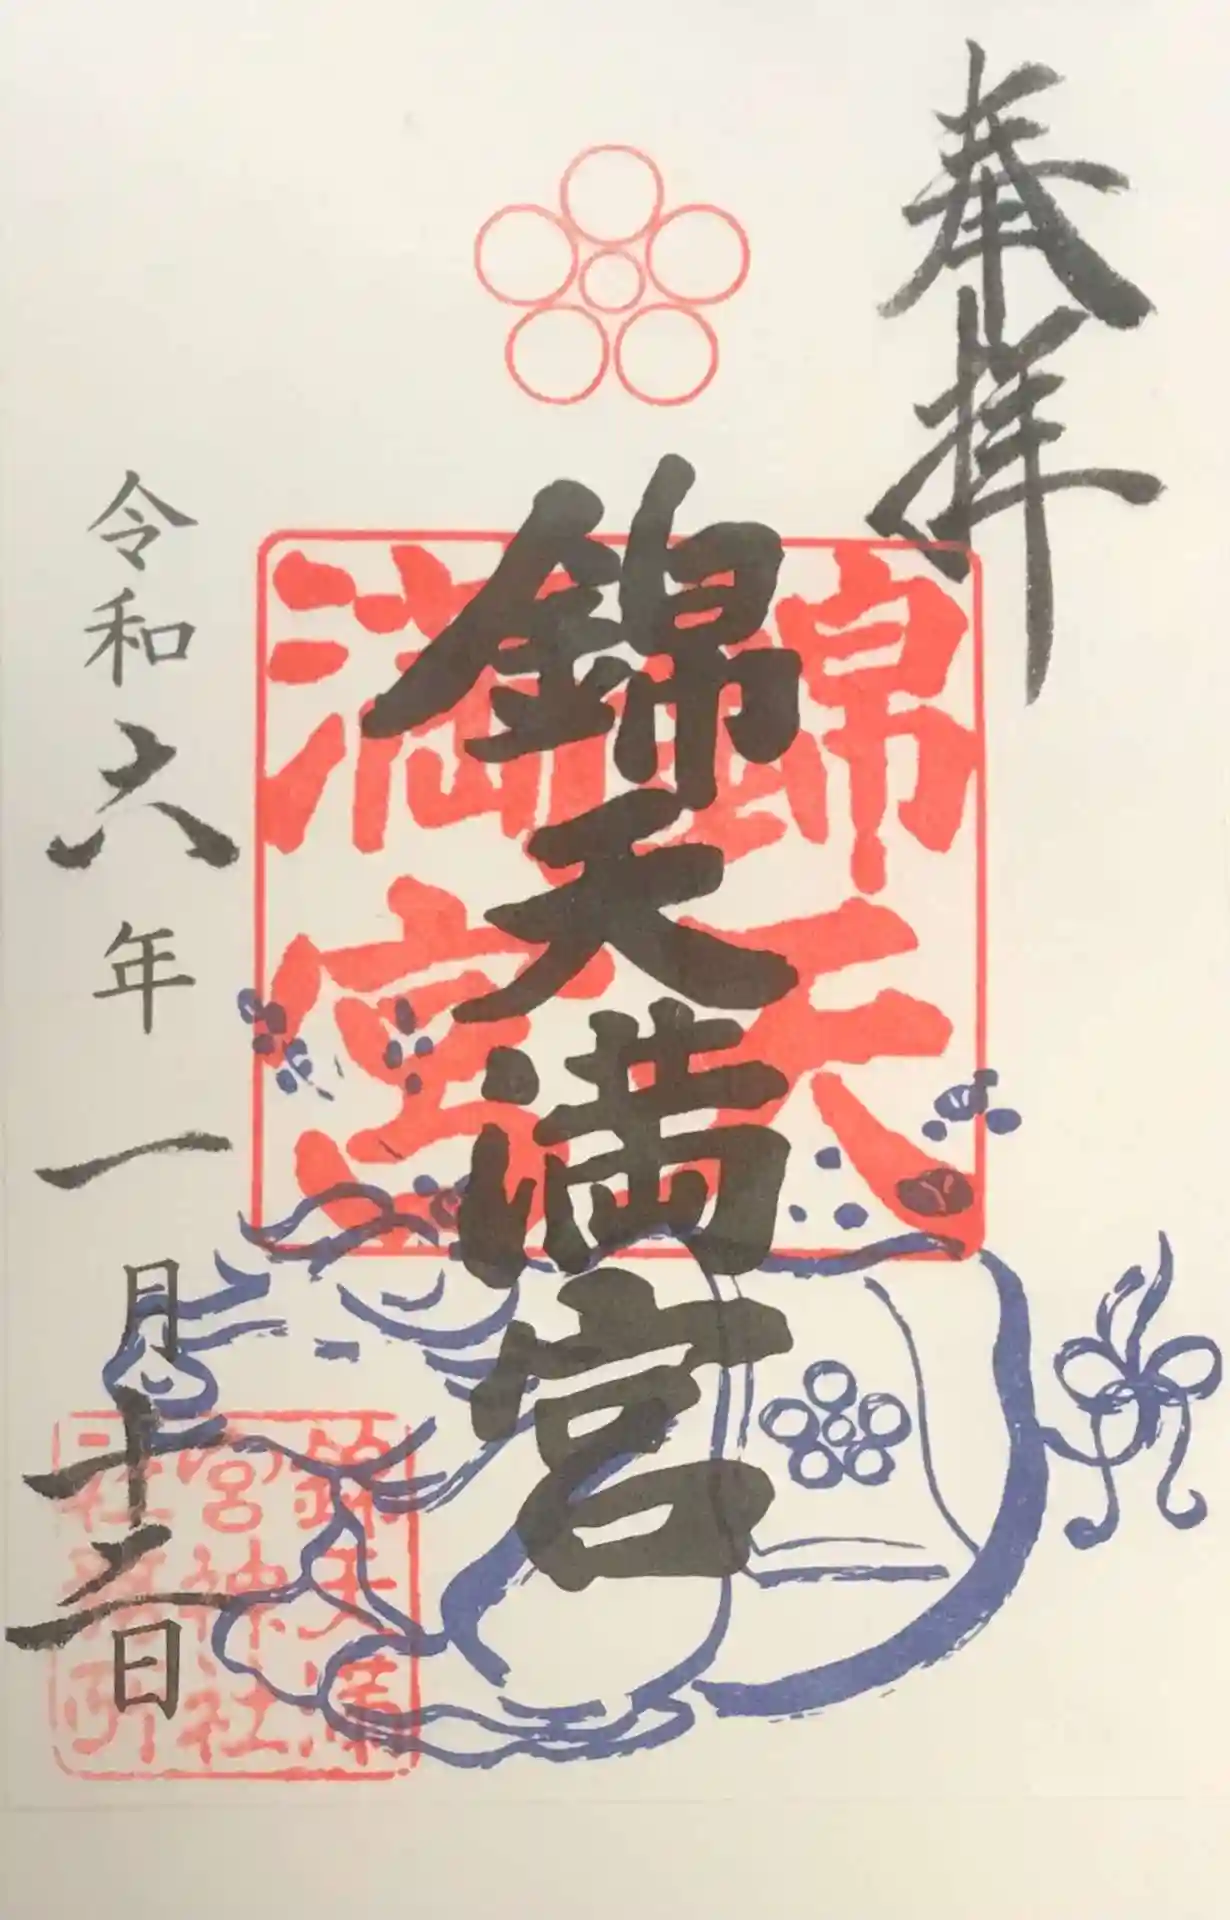 奉拝
錦天満宮
錦天
満宮
令和六年一月十二日
錦天満
宮神社